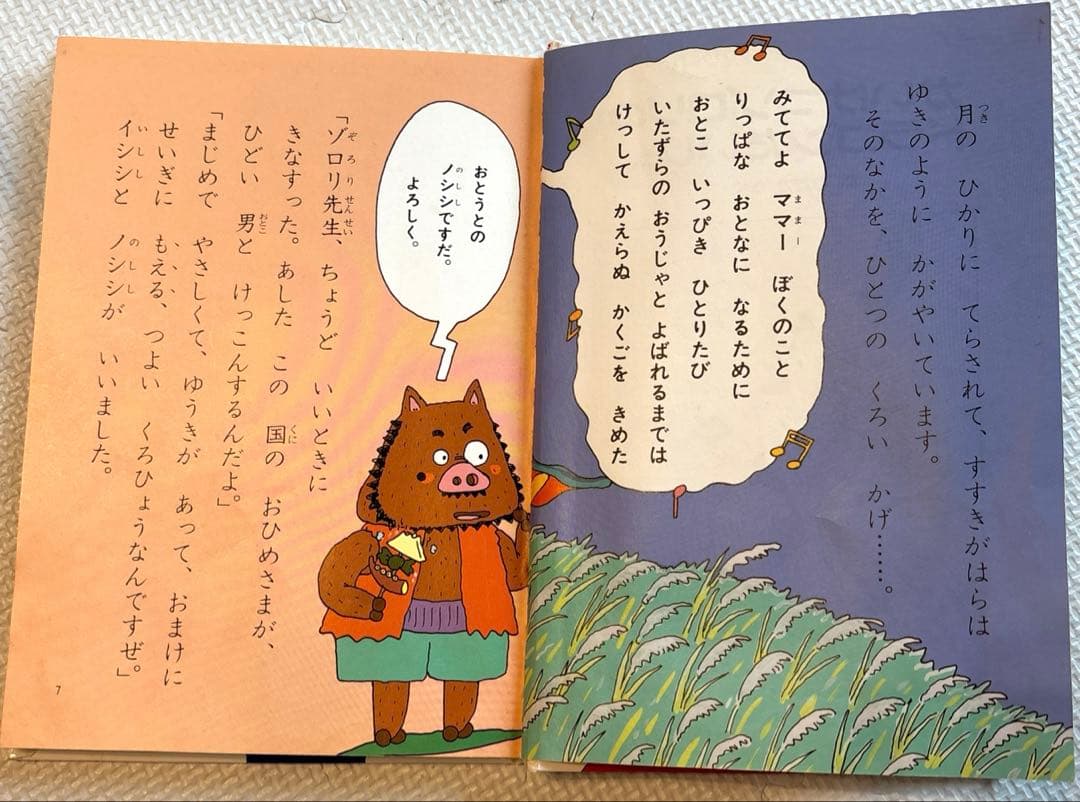 つき
月の ひかりに てらされて、すすきがはらは
ゆきのように かがやいています。
そのなかを、ひとつの くろい かげ……。
ままー
みててよ ママー ぼくのこと
りっぱな おとなに なるために
おとこ いっぴき ひとりたび
いたずらの おうじゃと よばれるまでは
けっして かえらぬ かくごを きめた
おとうとの
のしし
ノシシですだ。
よろしく。
ぞろりせんせい
「ゾロリ先生、 ちょうど いいときに
くに
きなすった。あした この 国の おひめさまが、
おとこ
ひどい 男と けっこんするんだよ。」
「まじめで やさしくて、ゆうきが あって、おまけに
せいぎに もえる、つよい くろひょうなんですぜ。」
いしし のしし
イシシと ノシシが いいました。
7